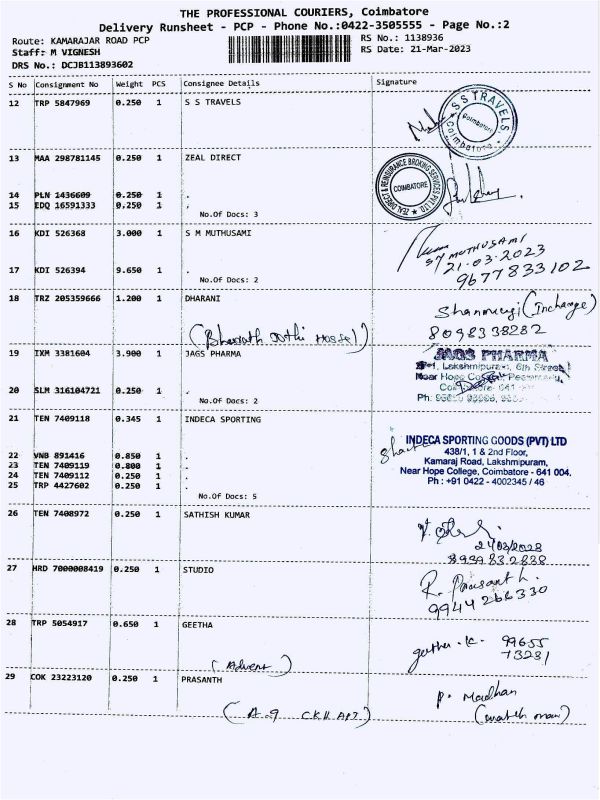 THE PROFESSIONAL COURIERS, Coimbatore
Delivery Runsheet - PCP - Phone No.:0422-3505555 - Page No.:2
Route: KAMARAJAR ROAD PCP RS No.: 1138936
Staff: M VIGNESH RS Date: 21-Mar-2023
DRS No.: DCJB113893602
S No Consignment No Weight PCS Consignee Details Signature
12 TRP 5847969 0.250 1 S S TRAVELS
S S TRAVELS
Coimbatore
Coimbatore
13 MAA 298781145 0.250 1 ZEAL DIRECT
ZEAL DIRECT & REINSURANCE BROKING SERVICES PVT LTD
COIMBATORE
14 PLN 1436609 0.250 1 .
15 EDQ 16591333 0.250 1 .
No.Of Docs: 3
16 KDI 526368 3.000 1 S M MUTHUSAMI
MUTHUSAMI
21-03-2023
9677833102
17 KDI 526394 9.650 1 .
No.Of Docs: 2
18 TRZ 205359666 1.200 1 DHARANI
(Incharge)
8098338282
19 IXM 3381604 3.900 1 JAGS PHARMA
JAGS PHARMA
Lakshmipuram, 6th Street
Near Hope
20 SLM 316104721 0.250 1 .
No.Of Docs: 2
21 TEN 7409118 0.345 1 INDECA SPORTING
INDECA SPORTING GOODS (PVT) LTD
438/1, 1 & 2nd Floor,
Kamaraj Road, Lakshmipuram,
Near Hope College, Coimbatore - 641 004.
Ph : +91 0422 - 4002345 / 46
22 VNB 891416 0.850 1 .
23 TEN 7409119 0.800 1 .
24 TEN 7409112 0.250 1 .
25 TRP 4427602 0.250 1 .
No.Of Docs: 5
26 TEN 7408972 0.250 1 SATHISH KUMAR
8939832838
27 HRD 7000008419 0.250 1 STUDIO
R. Prasanth.
9944266330
28 TRP 5054917 0.650 1 GEETHA
geetha. K. 99655
73231
(Advent)
29 COK 23223120 0.250 1 PRASANTH
P. Madhan
(watch man)
(A-9 CKH APT)